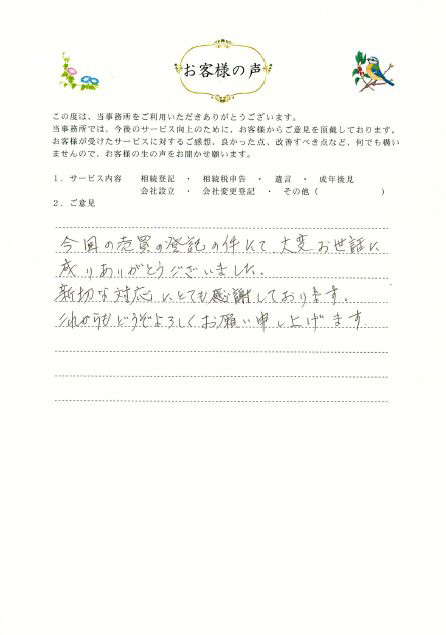 お客様の声
この度は、当事務所をご利用いただきありがとうございます。
当事務所では、今後のサービス向上のために、お客様からご意見を頂戴しております。
お客様が受けたサービスに対するご感想、良かった点、改善すべき点など、何でも構い
ませんので、お客様の生の声をお聞かせ願います。
1．サービス内容　相続登記　・　相続税申告　・　遺言　・　成年後見
会社設立　・　会社変更登記　・　その他（　　　　　　）
2．ご意見
今回の売買の登記の件にて、大変お世話に
成りありがとうございました。
親切な対応に、とても感謝しております。
これからもどうぞよろしくお願い申し上げます